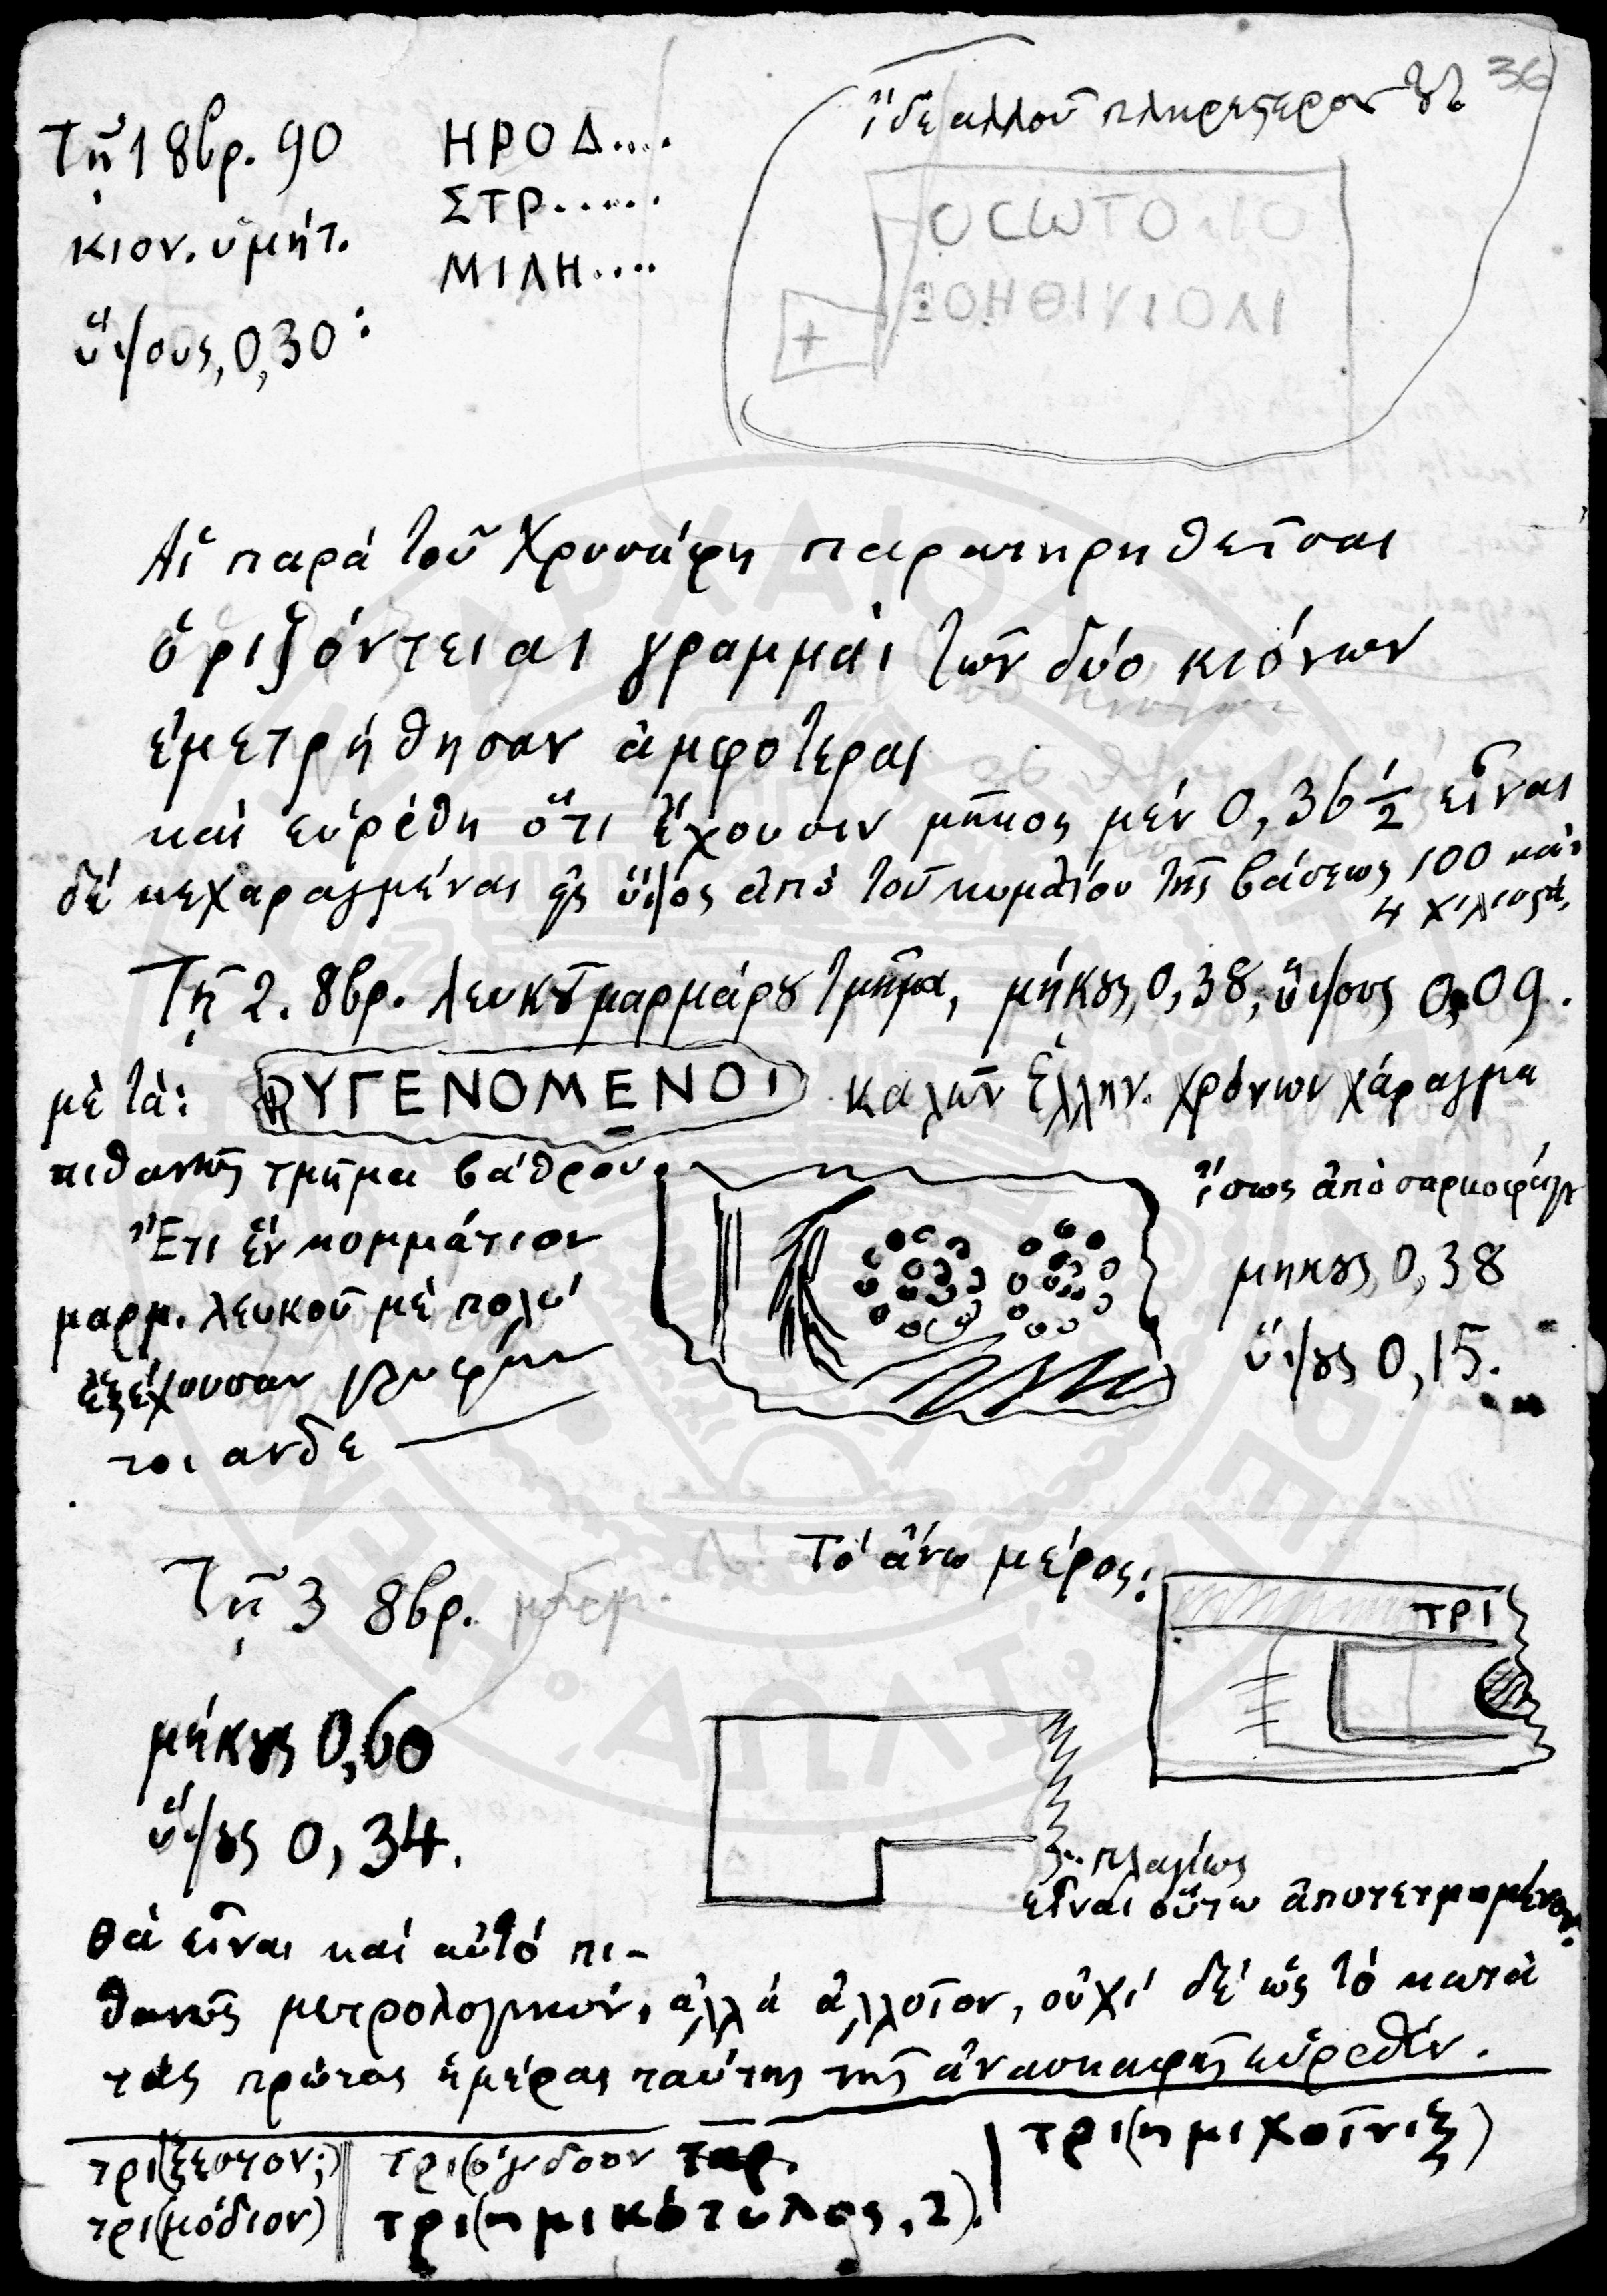 36
Τῇ 1 8βρ. 90
κιον. ὑμήτ.
ὕψους, 0,30:
ΗΡΟΔ....
ΣΤΡ......
ΜΙΛΗ....
ἴδε ἀλλοῦ πληρέστερον
ΟϹΩΤΟ
+
Αἱ παρὰ τοῦ Χρυσάφη παρατηρηθεῖσαι
ὁριζόντειαι γραμμαὶ τῶν δύο κιόνων
ἐμετρήθησαν ἀμφότεραι
καὶ εὑρέθη ὅτι ἔχουσιν μῆκος μὲν 0,36 1/2 εἶναι
δὲ κεχαραγμέναι εἰς ὕψος ἀπὸ τοῦ κυματίου τῆς βάσεως 100 καὶ
4 χιλιοστά.
Τῇ 2. 8βρ. λευκȣ͂ μαρμάρȣ τμῆμα, μήκȣς, 0,38, ὕψους 0,09.
μὲ τὰ: ΡΥΓΕΝΟΜΕΝΟΙ καλῶν Ἑλλην. χρόνων χάραγμα
πιθανῶς τμῆμα βάθρου.
Ἔτι ἓν κομμάτιον
μαρμ. λευκοῦ μὲ πολὺ
ἐξέχουσαν γλυφὴν
τοιανδε —
ἴσως ἀπὸ σαρκοφάγȣ
μηκȣς 0,38
ὕψȣς 0,15.
Τῇ 3 8βρ.
Τὸ ἄνω μέρος:
ΤΡΙ
μήκȣς 0,60
ὕψȣς 0,34.
πλαγίως
εἶναι οὕτω ἀποτετμημένον.
θὰ εἶναι καὶ αὐτὸ πι-
θανῶς μετρολογικόν, ἀλλὰ ἀλλοῖον, οὐχὶ δὲ ὡς τὸ κατὰ
τὰς πρώτας ἡμέρας ταύτης τῆς ἀνασκαφῆς εὑρεθέν.
τρι(ξεστον;)
τρι(μόδιον)
τρι(όγδοον
τρι(ημικότυλος, 2).
τρι(ημιχοῖνιξ)